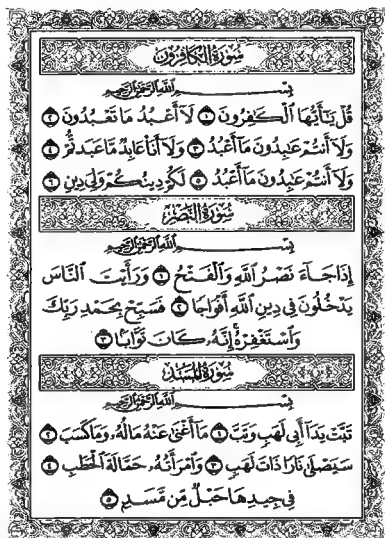 سُورَةُ الكَافِرُونَ
بِسْمِ اللَّهِ الرَّحْمَٰنِ الرَّحِيمِ
قُلْ يَـٰٓأَيُّهَا ٱلْكَـٰفِرُونَ ١ لَآ أَعْبُدُ مَا تَعْبُدُونَ ٢
وَلَآ أَنتُمْ عَـٰبِدُونَ مَآ أَعْبُدُ ٣ وَلَآ أَنَا۠ عَابِدٌ مَّا عَبَدتُّمْ ٤
وَلَآ أَنتُمْ عَـٰبِدُونَ مَآ أَعْبُدُ ٥ لَكُمْ دِينُكُمْ وَلِىَ دِينِ ٦
سُورَةُ النَّصْرِ
بِسْمِ اللَّهِ الرَّحْمَٰنِ الرَّحِيمِ
إِذَا جَآءَ نَصْرُ ٱللَّهِ وَٱلْفَتْحُ ١ وَرَأَيْتَ ٱلنَّاسَ
يَدْخُلُونَ فِى دِينِ ٱللَّهِ أَفْوَاجًا ٢ فَسَبِّحْ بِحَمْدِ رَبِّكَ
وَٱسْتَغْفِرْهُ ۚ إِنَّهُۥ كَانَ تَوَّابًۢا ٣
سُورَةُ المَسَدِ
بِسْمِ اللَّهِ الرَّحْمَٰنِ الرَّحِيمِ
تَبَّتْ يَدَآ أَبِى لَهَبٍ وَتَبَّ ١ مَآ أَغْنَىٰ عَنْهُ مَالُهُۥ وَمَا كَسَبَ ٢
سَيَصْلَىٰ نَارًا ذَاتَ لَهَبٍ ٣ وَٱمْرَأَتُهُۥ حَمَّالَةَ ٱلْحَطَبِ ٤
فِى جِيدِهَا حَبْلٌ مِّن مَّسَدٍۭ ٥